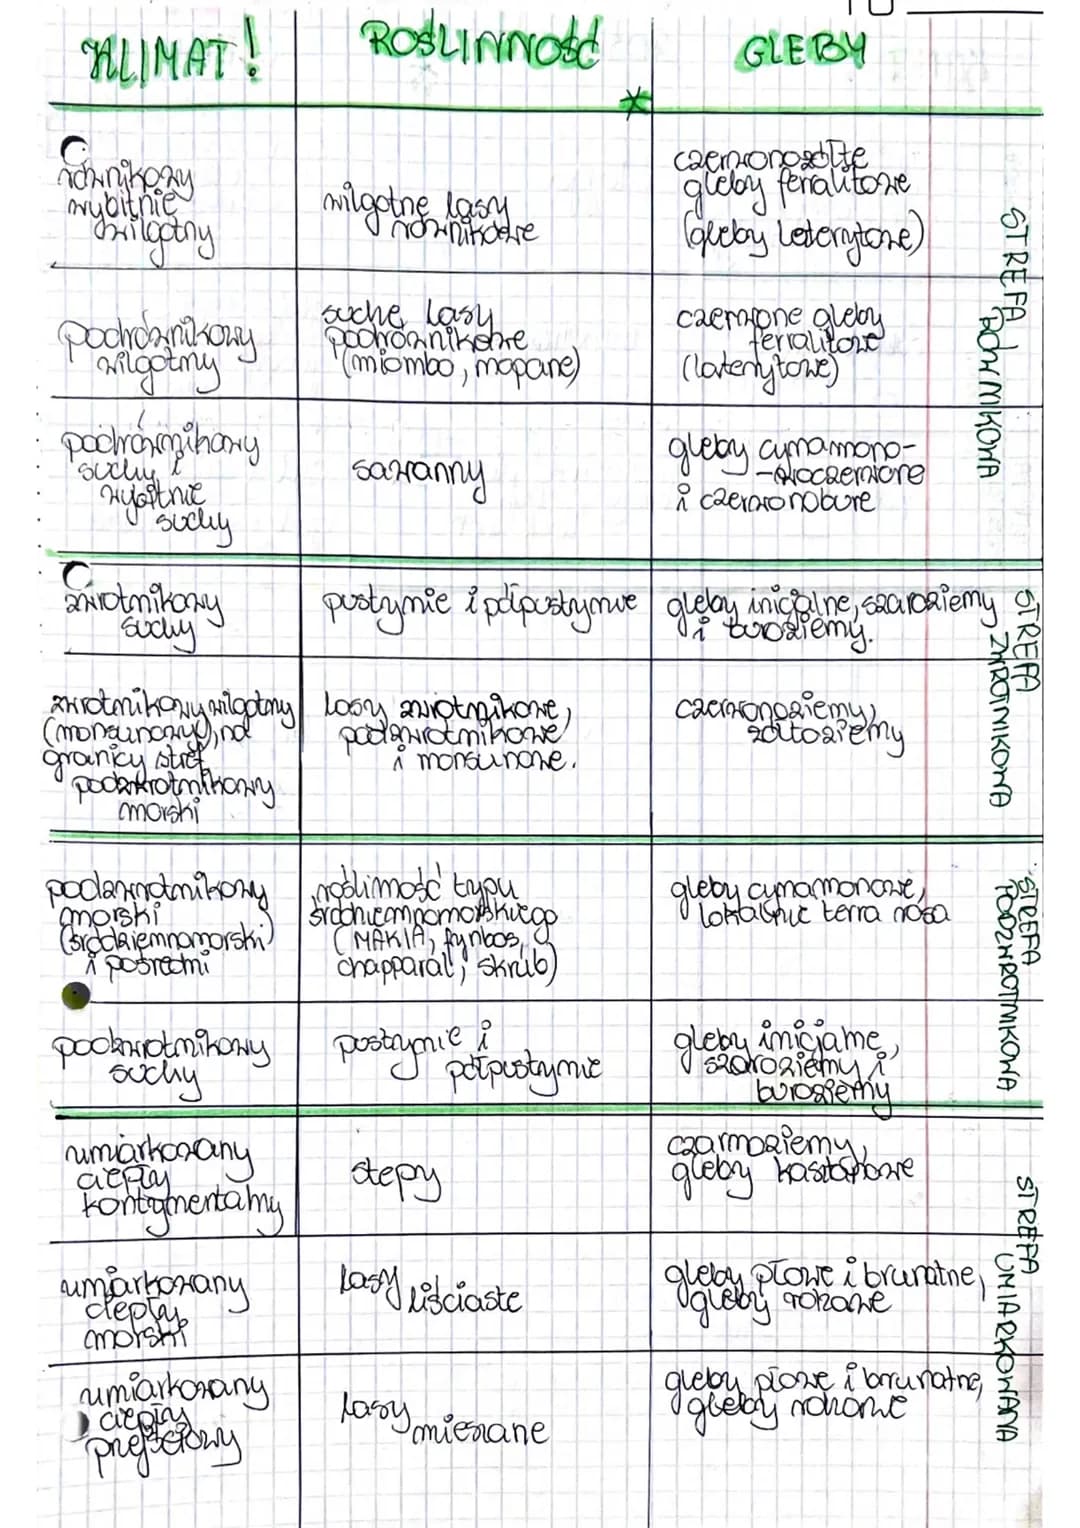 KLIMAT!
ROŚLINNOŚĆ
GLEBY
*
równikowy
wybitnie
wilgotny
wilgotne lasy
równikowe
czerwonożółte
gleby ferralitowe
(gleby laterytowe)
podrównikowy
wilgotny
suche lasy
podrównikowe
(miombo, mopane)
czerwone gleby
ferralitowe
(laterytowe)
podrównikowy
suchy i
wybitnie
suchy
sawanny
gleby cynamono-
-woczerwone
i czerwonobure
STREFA
RÓWNIKOWA
zwrotnikowy
suchy
pustynie i półpustynie
gleby inicjalne, szaroziemy
i buroziemy.
zwrotnikowy wilgotny
(monsunowy), na
granicy stref
podzwrotnikowy
morski
lasy zwrotnikowe,
podzwrotnikowe
i monsunowe.
czerwonoziemy,
żółtoziemy
STREFA
ZWROTNIKOWA
podzwrotnikowy
morski
(śródziemnomorski)
i pośredni
roślinność typu
śródziemnomorskiego
(MAKIA, fynbos,
chapparal, skrub)
gleby cynamonowe,
lokalnie terra rosa
podzwrotnikowy
suchy
pustynie i
półpustynie
gleby inicjalne,
szaroziemy i
buroziemy
STREFA
PODZWROTNIKOWA
umiarkowany
ciepły
kontynentalny
stepy
czarnoziemy,
gleby kasztanowe
umiarkowany
ciepły
morski
lasy
liściaste
gleby płowe i brunatne,
gleby rdzawe
umiarkowany
ciepły
przejściowy
lasy
mieszane
gleby płowe i brunatne,
gleby rdzawe
STREFA
UMIARKOWANA